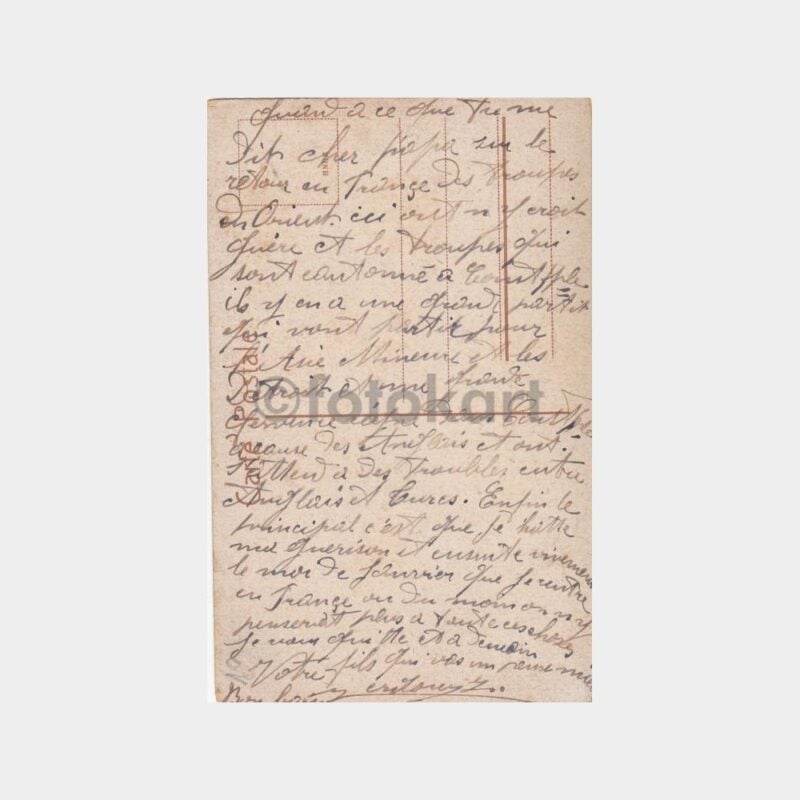 quand a ce que tu me
dit cher papa sur le
retour en France des troupes
en Orient ici ont n'y croit
guère et les troupes qui
sont cantonné a Const/ple
il y en a une grande partit
qui vont partir pour
l'Asie Mineure et les
Détroit et une grande
a cause des Anglais et ont
s'attend a des troubles entre
Anglais et Turcs. Enfin le
principal c'est que je hatte
ma guerison et ensuite vivement
le moi de Janvier que je rentre
en France ou du moin on n'y
penserat plus a toute ces choses
Je vous quitte et a demain
Votre fils qui vas un peu mieux
Bon
Carte postale
©fotokart